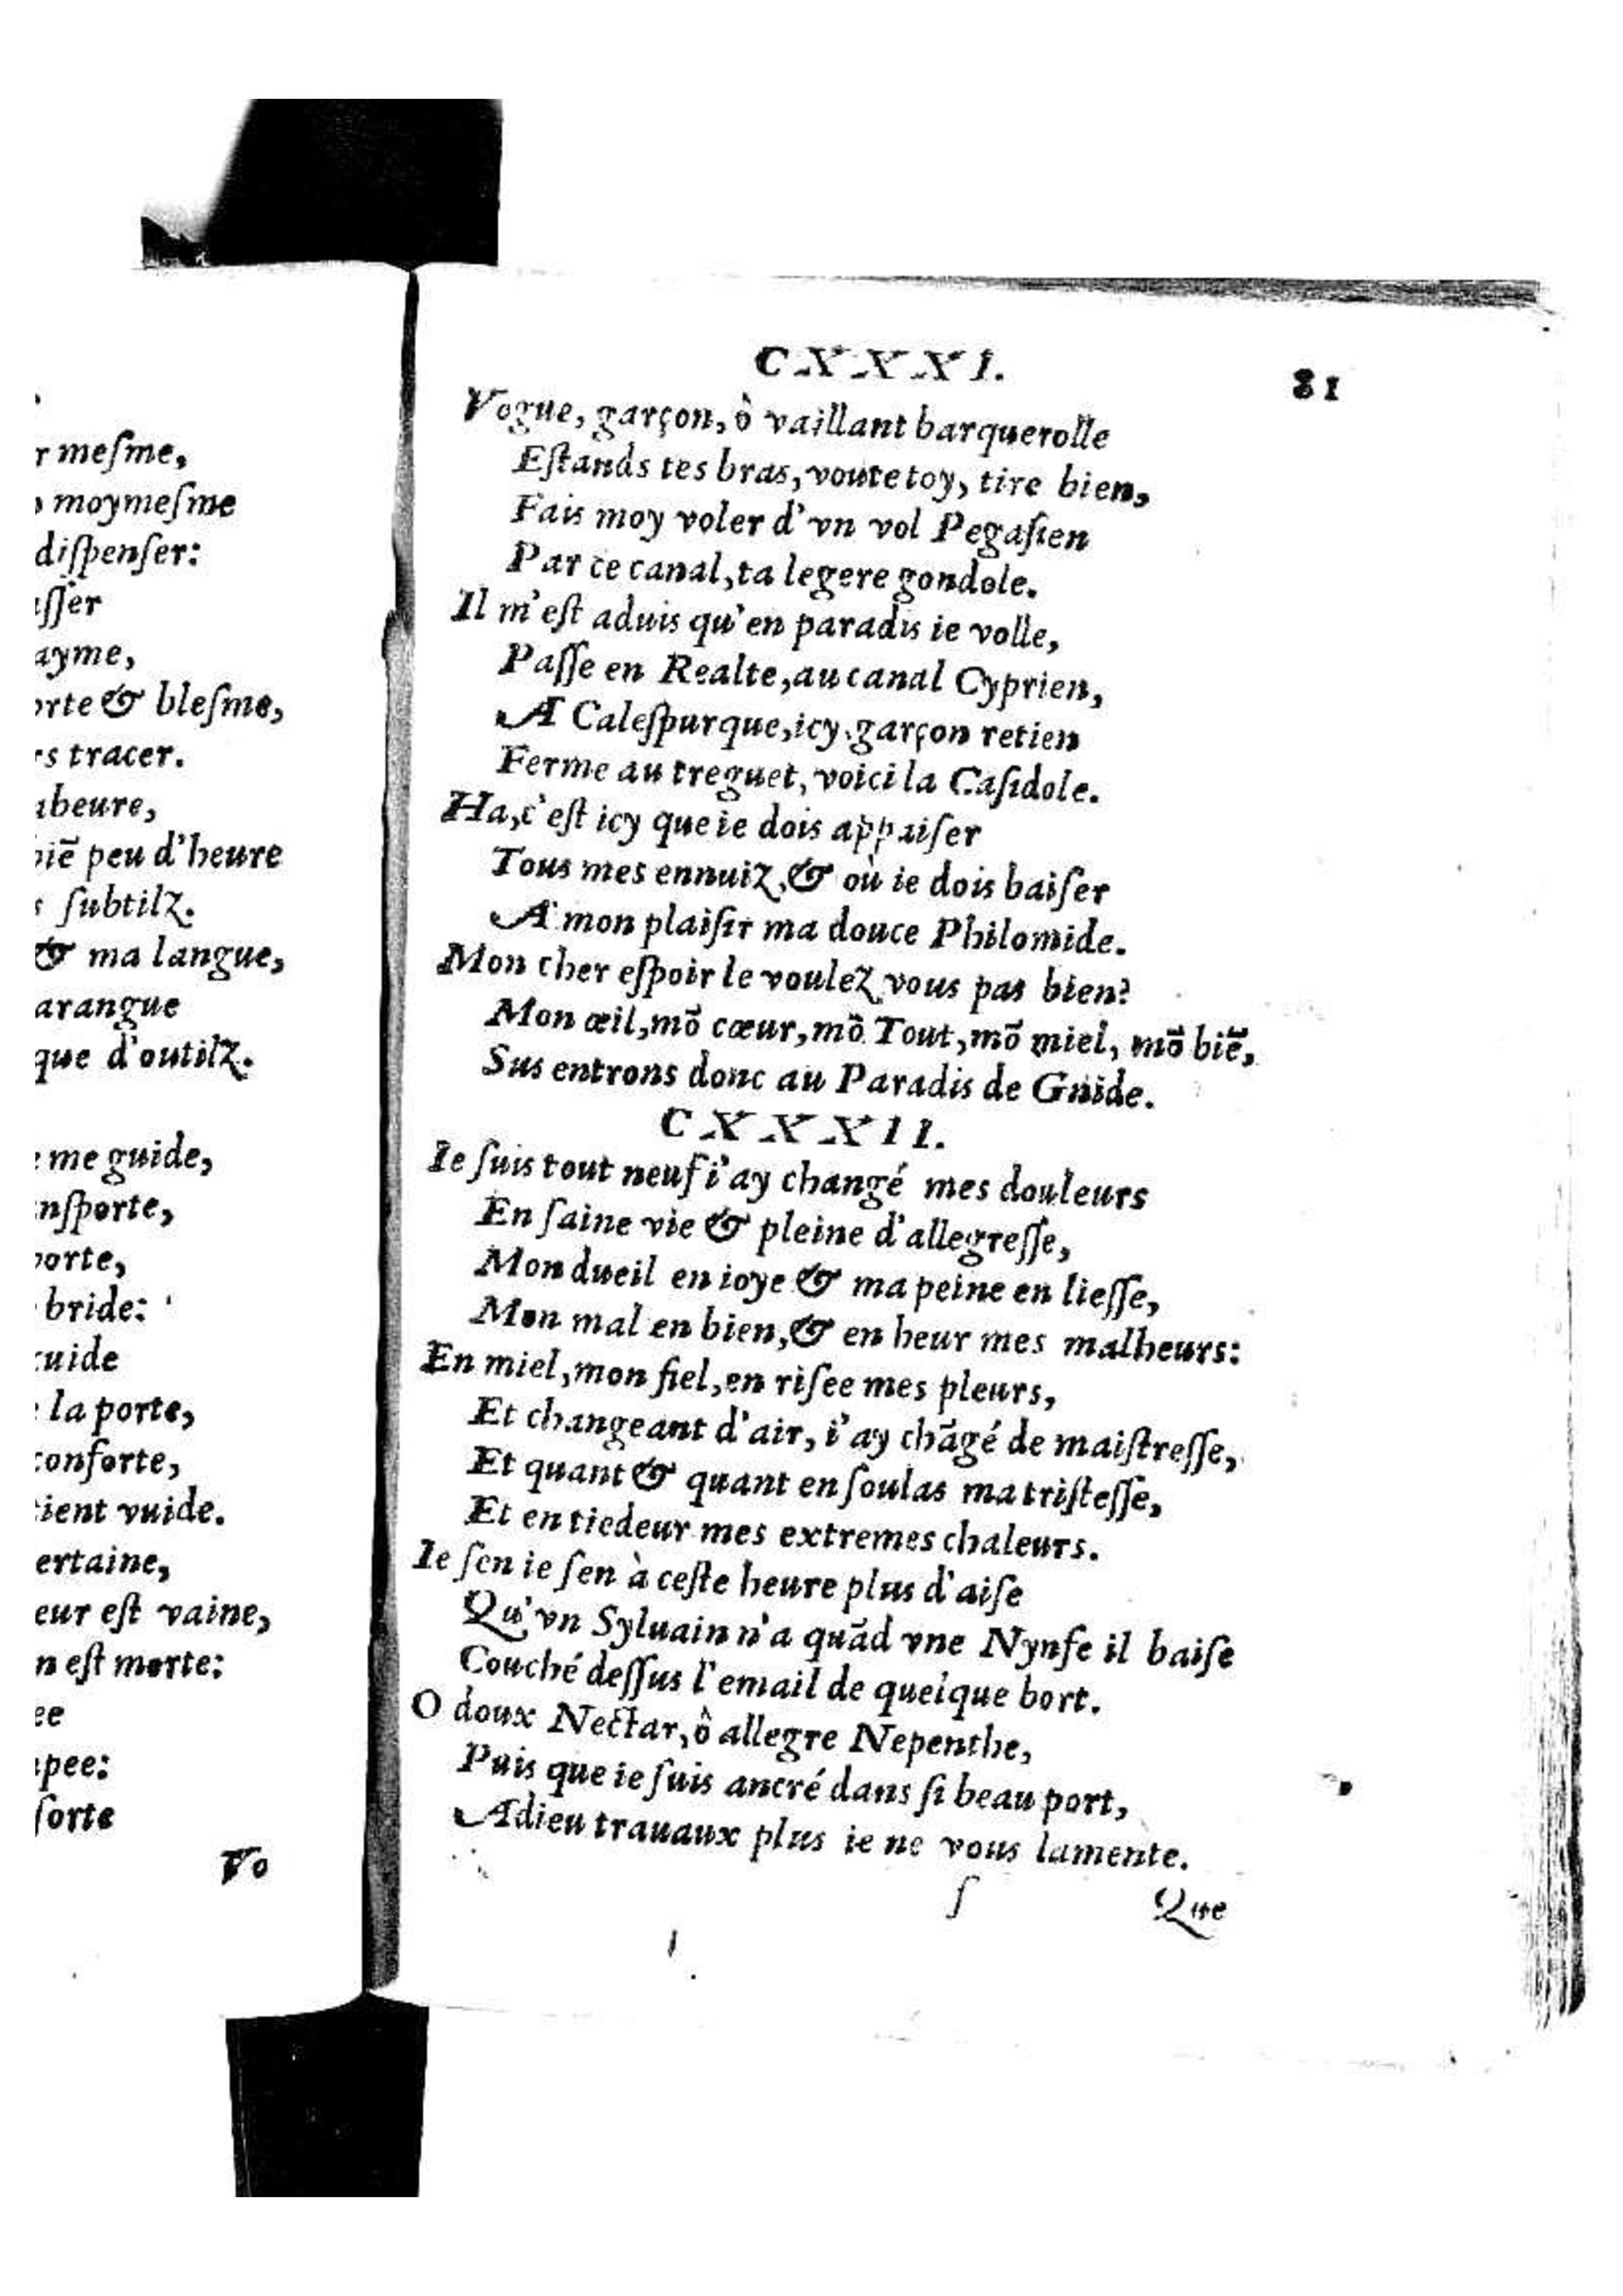 r meſme,
moymeſme
diſpenſer:
ſſer
ayme,
orte & bleſme,
rs tracer.
abeure,
biē peu d'heure
s ſubtilz.
& ma langue,
arangue
que d'outilz.
e me guide,
nſporte,
porte,
bride:
cuide
la porte,
conforte,
tient vuide.
ertaine,
eur eſt vaine,
n eſt morte:
ee
pee:
ſorte
Vo
CXXXI.
81
Vogue, garçon, ô vaillant barquerolle
Eſtands tes bras, voute toy, tire bien,
Fais moy voler d'vn vol Pegaſien
Par ce canal, ta legere gondole.
Il m'eſt aduis qu'en paradis ie volle,
Paſſe en Realte, au canal Cyprien,
A Caleſpurque, icy garçon retien
Ferme au treguet, voici la Caſidole.
Ha, c'eſt icy que ie dois appaiſer
Tous mes ennuiz, & où ie dois baiſer
A mon plaiſir ma douce Philomide.
Mon cher eſpoir le voulez vous pas bien?
Mon œil, mō cœur, mō Tout, mō miel, mō biē,
Sus entrons donc au Paradis de Gnide.
CXXXII.
Ie ſuis tout neuf i'ay changé mes douleurs
En ſaine vie & pleine d'allegreſſe,
Mon dueil en ioye & ma peine en lieſſe,
Mon mal en bien, & en heur mes malheurs:
En miel, mon fiel, en riſee mes pleurs,
Et changeant d'air, i'ay chāgé de maiſtreſſe,
Et quant & quant en ſoulas ma triſteſſe,
Et en tiedeur mes extremes chaleurs.
Ie ſen ie ſen à ceſte heure plus d'aiſe
Qu'vn Syluain n'a quād vne Nynfe il baiſe
Couché deſſus l'email de quelque bort.
O doux Nectar, ô allegre Nepenthe,
Puis que ie ſuis ancré dans ſi beau port,
Adieu trauaux plus ie ne vous lamente.
ſ
Que